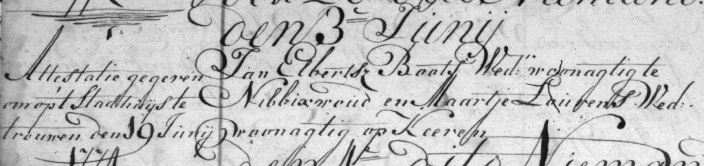 den 3=n Junij
Attestatie gegeven
om op't Stadhuijs te
trouwen den 19 Junij
Jan Elbertsz Baats Wed:r woonagtig te
Nibbixwoud en Maartje Lourens Wed:
woonagtig op Keeren